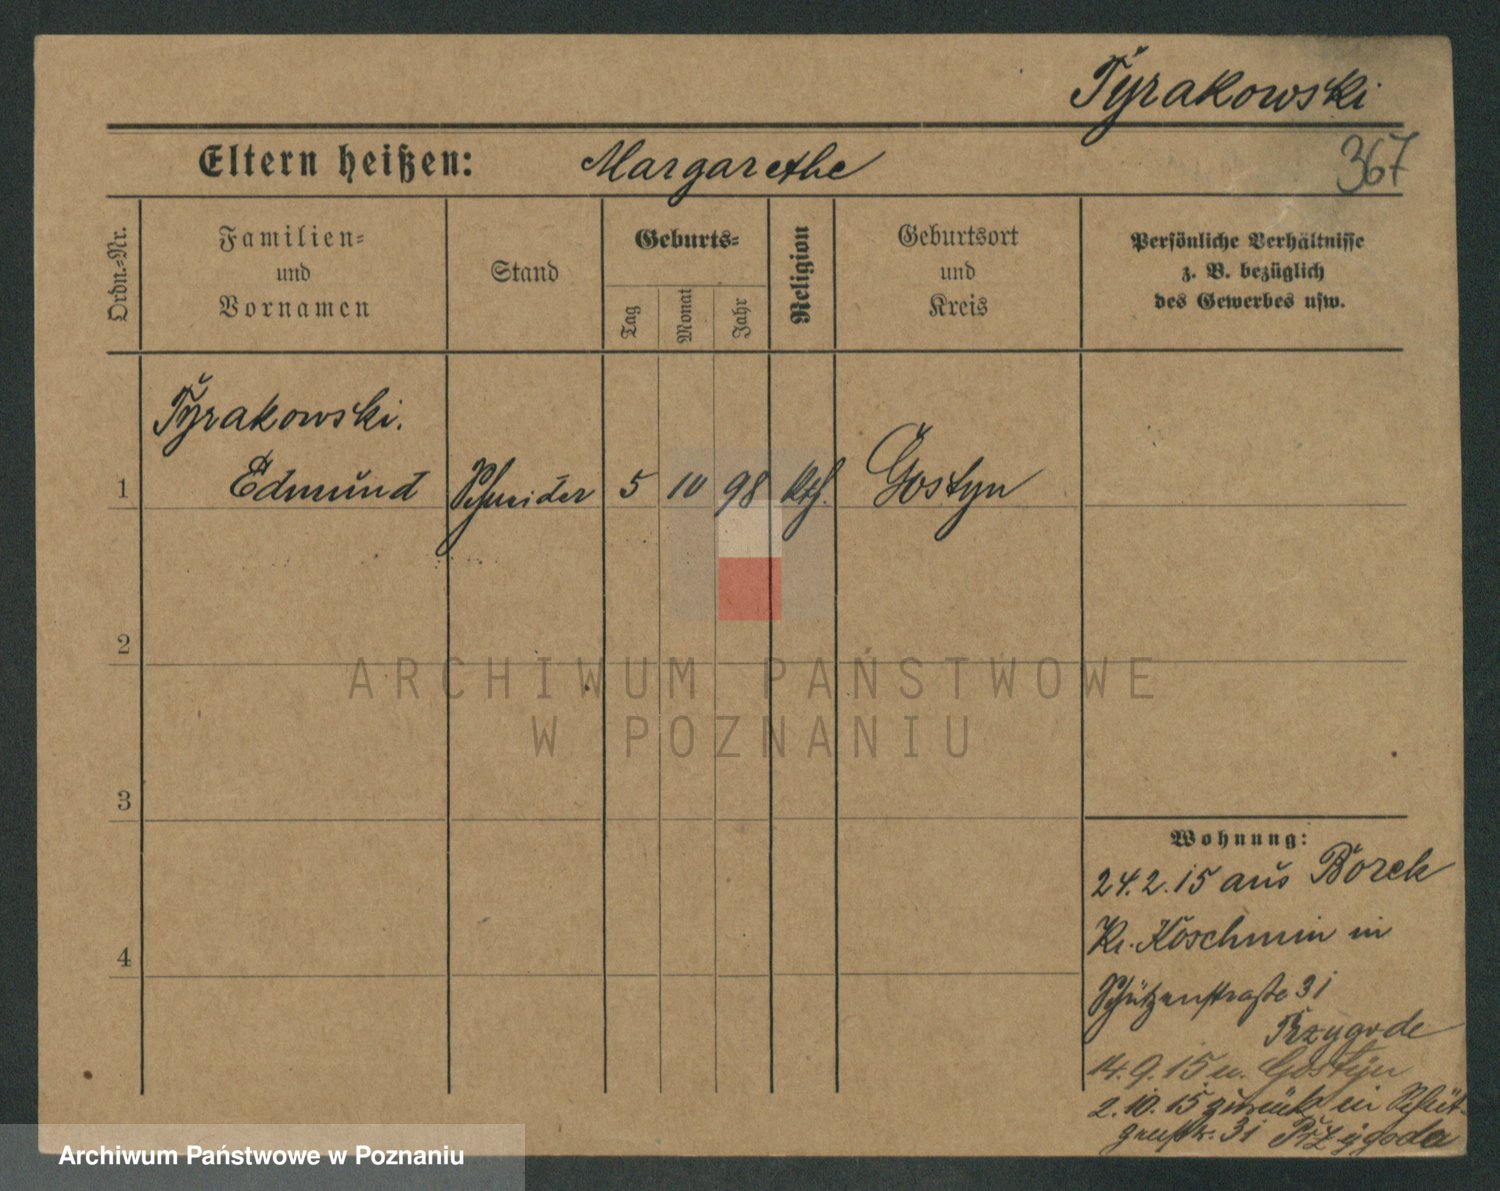 Tyrakowski
367
Eltern heißen: Margarethe
Ordn.-Nr.
Familien-
und
Vornamen
Stand
Geburts-
Tag
Monat
Jahr
Religion
Geburtsort
und
Kreis
Persönliche Verhältnisse
z. B. bezüglich
des Gewerbes usw.
Tyrakowski.
1 Edmund Schneider 5 10 98 kth. Gostyn
2
ARCHIWUM PAŃSTWOWE
W POZNANIU
3
Wohnung:
24.2.15 aus Borek
Kr. Koschmin in
4
Schützenstraße 31
Przygode
14.9.15 n. Gostyn
2.10.15 zurück in Schüt-
zenstr. 31 Przygoda
Archiwum Państwowe w Poznaniu